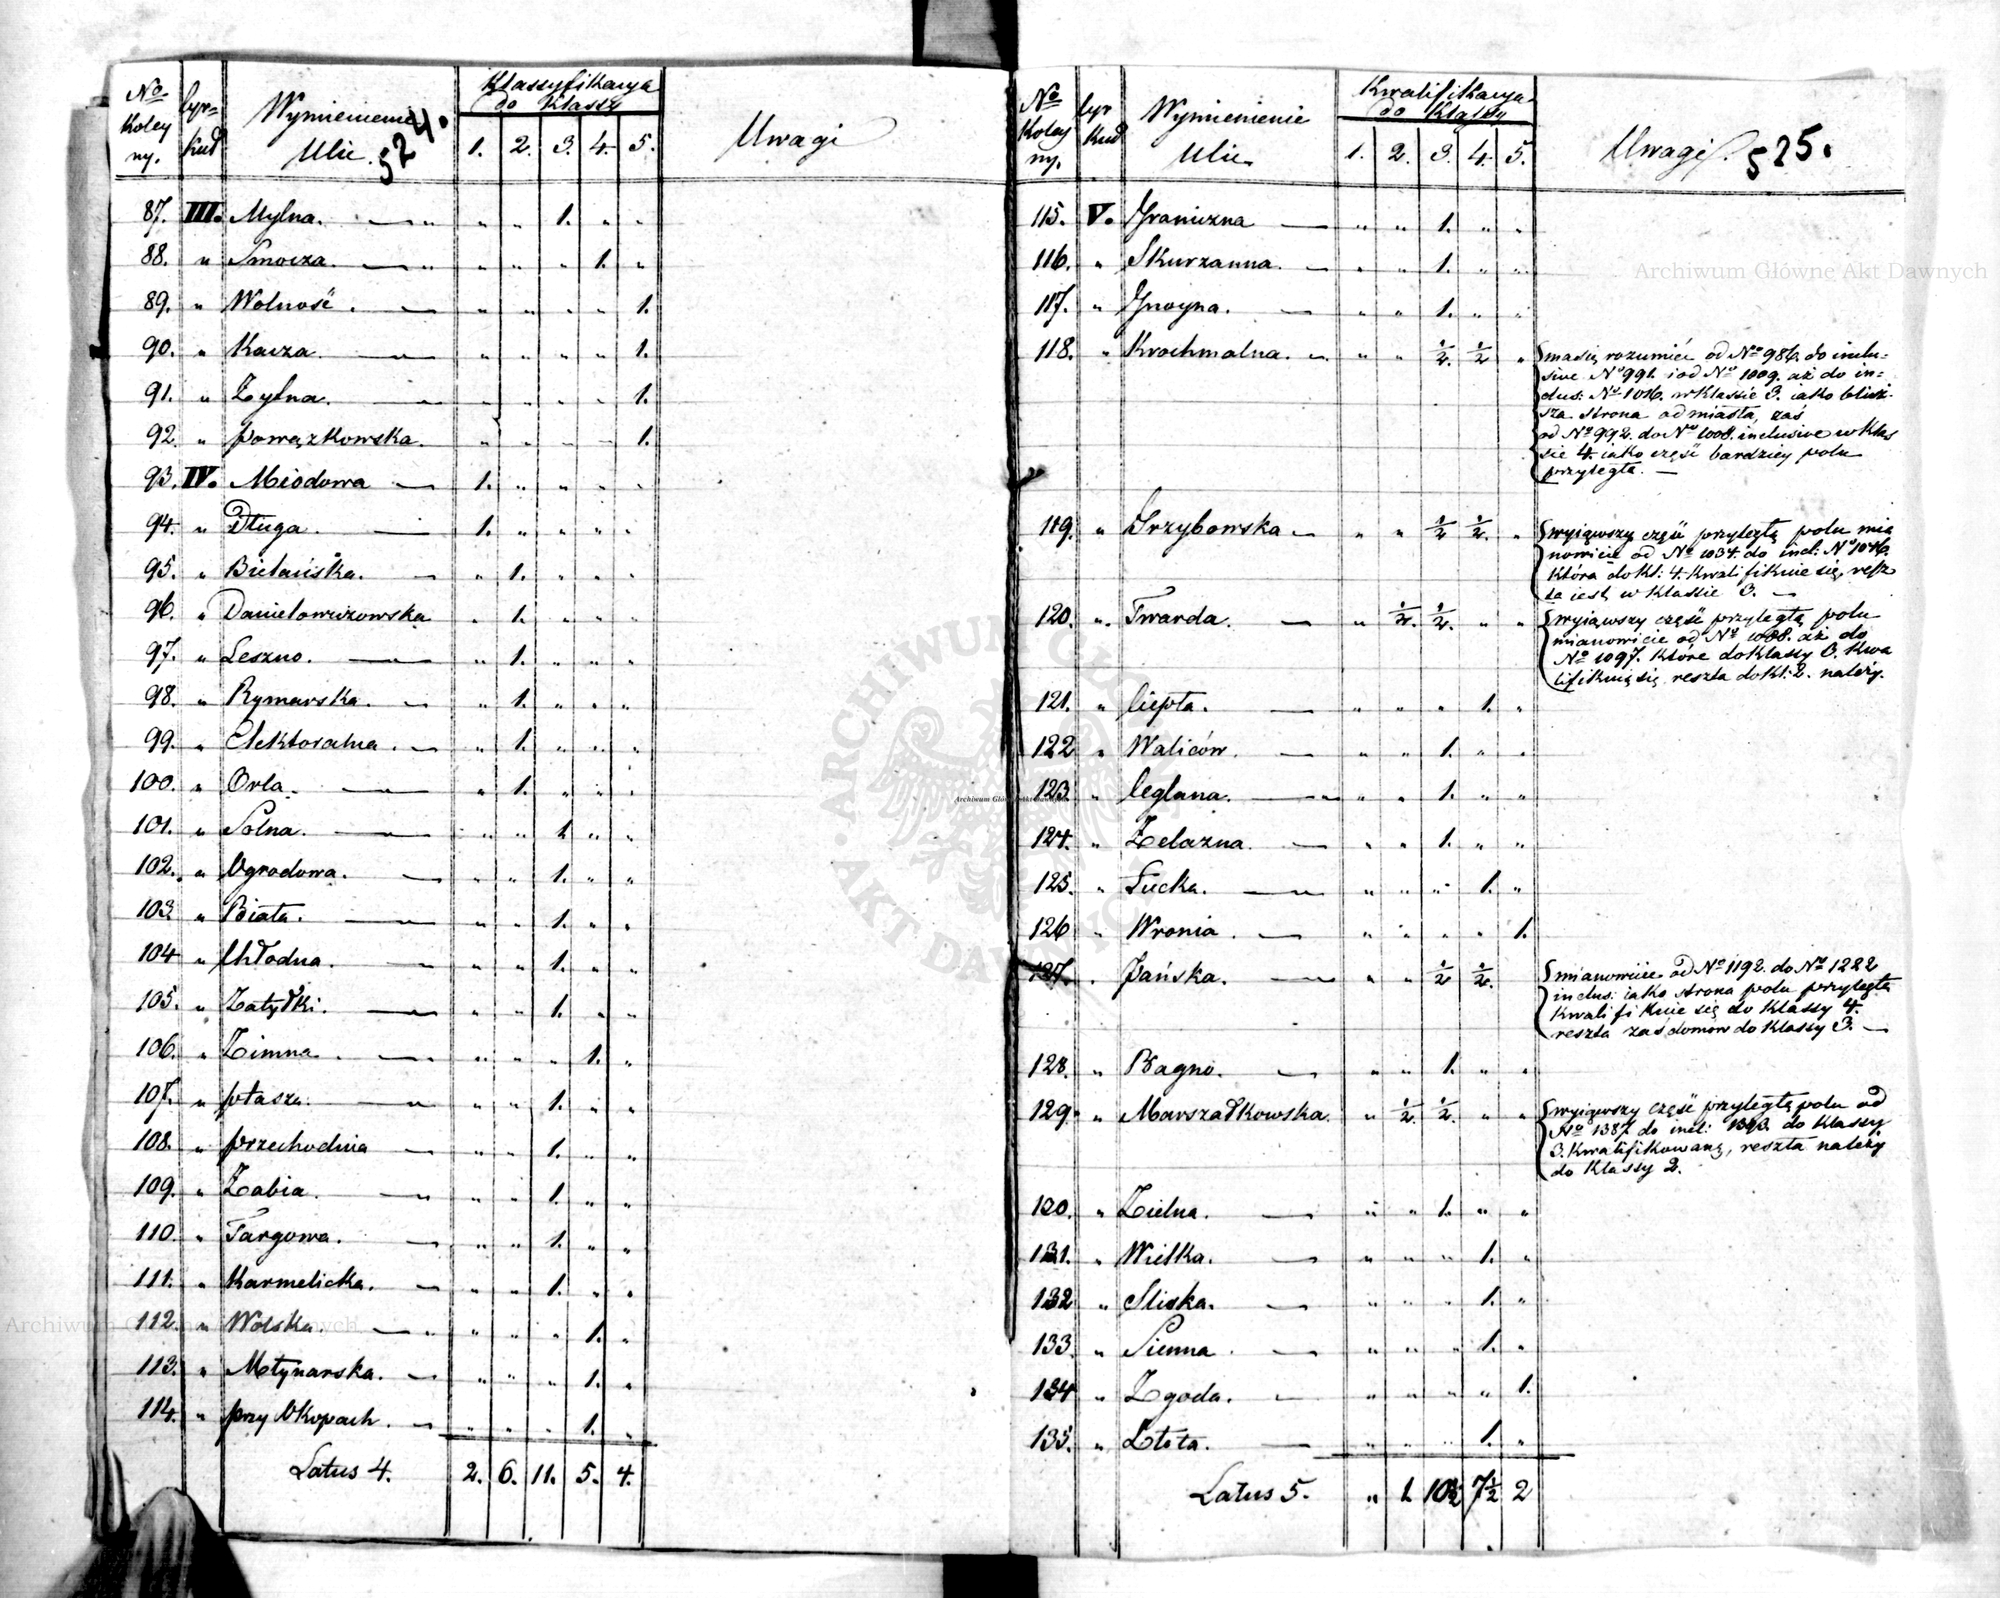 No Koley ny. Cyr= kuł Wymienienie Ulic. 524. Klassyfikacya do Klassy 1. 2. 3. 4. 5. Uwagi
87. III. Mylna. — „ „ „ 1. „ „
88. „ Smocza. — „ „ „ „ 1. „
89. „ Wolność. — „ „ „ „ 1.
90. „ Kacza. — „ „ „ „ 1.
91. „ Żytna. — „ „ „ „ 1.
92. „ Powązkowska. „ „ „ „ 1.
93. IV. Miodowa — 1. „ „ „ „
94. „ Długa. — 1. „ „ „ „
95. „ Bielańska. — „ 1. „ „ „
96. „ Danielowiczowska „ 1. „ „ „
97. „ Leszno. — „ 1. „ „ „
98. „ Rymarska. — „ 1. „ „ „
99. „ Elektoralna. — „ 1. „ „ „
100. „ Orla. — „ 1. „ „ „
101. „ Solna. — „ „ 1. „ „
102. „ Ogrodowa. — „ „ 1. „ „
103. „ Biała. — „ „ 1. „ „
104 „ Chłodna. — „ „ 1. „ „
105. „ Zatyłki. — „ „ 1. „ „
106. „ Zimna. — „ „ „ 1. „
107. „ Ptasza. — „ „ 1. „ „
108. „ Przechodnia — „ „ 1. „ „
109. „ Żabia. — „ „ 1. „ „
110. „ Targowa. — „ „ 1. „ „
111. „ Karmelicka. — „ „ 1. „ „
112. „ Wolska. — „ „ „ 1. „
113. „ Młynarska. — „ „ „ 1. „
114. „ przy Okopach. — „ „ „ 1. „
Latus 4. 2. 6. 11. 5. 4.
No Koley ny. Cyr kuł Wymienienie Ulic. Kwalifikacya do Klassy 1. 2. 3. 4. 5. Uwagi. 525.
115. V. Graniczna — „ „ 1. „ „
116. „ Skurzanna. — „ „ 1. „ „
117. „ Gnoyna. — „ „ 1. „ „
118. „ Krochmalna. — „ „ ½. ½ „ ma się rozumieć od No 986. do inclu=
sive No 991. i od No 1009. aż do in=
clus: No 1016. w klassie 3. iako bliż=
sza strona od miasta, zaś
od No 992. do No 1008. inclusive w klas
sie 4. iako część bardziey polu
przyległa. —
119. „ Grzybowska — „ „ ½ ½. „ wyiąwszy część przyległą polu mia
nowicie od No 1034. do incl: No 1046.
która do kl: 4. kwalifikuie się, resz
ta iest w klassie 3. —
120. „ Twarda. — „ ½. ½. „ „ wyiąwszy część przyległą polu
mianowicie od No 1088. aż do
No 1097. które do klassy 3. kwa
lifikuią się reszta do kl: 2. należy.
121. „ Ciepła. — „ „ „ 1. „
122 „ Waliców. — „ „ 1. „ „
123 „ Ceglana. — „ „ 1. „ „
124. „ Żelazna. — „ „ 1. „ „
125. „ Łucka. — „ „ „ 1. „
126 „ Wronia. — „ „ „ „ 1.
127. „ Pańska. — „ „ ½ ½. mianowicie od No 1192. do No 1222
inclus: iako strona polu przyległa
kwalifikuie się do klassy 4.
reszta zaś domow do klassy 3. —
128. „ Bagno. — „ „ 1. „ „
129. „ Marszałkowska. „ ½. ½. „ „ wyiąwszy część przyległą polu od
No 1387. do incl: 1393. do klassy
3. kwalifikowaną, reszta należy
do klassy 2.
130. „ Zielna. — „ „ 1. „ „
131. „ Wielka. — „ „ „ 1. „
132 „ Sliska. — „ „ „ 1. „
133. „ Sienna. — „ „ „ 1. „
134 „ Zgoda. — „ „ „ „ 1.
135. „ Złota. — „ „ „ 1. „
Latus 5. „ 1. 10½ 7½ 2
Archiwum Główne Akt Dawnych
ARCHIWUM GŁÓWNE AKT DAWNYCH
Archiwum Główne Akt Dawnych
Archiwum Główne Akt Dawnych